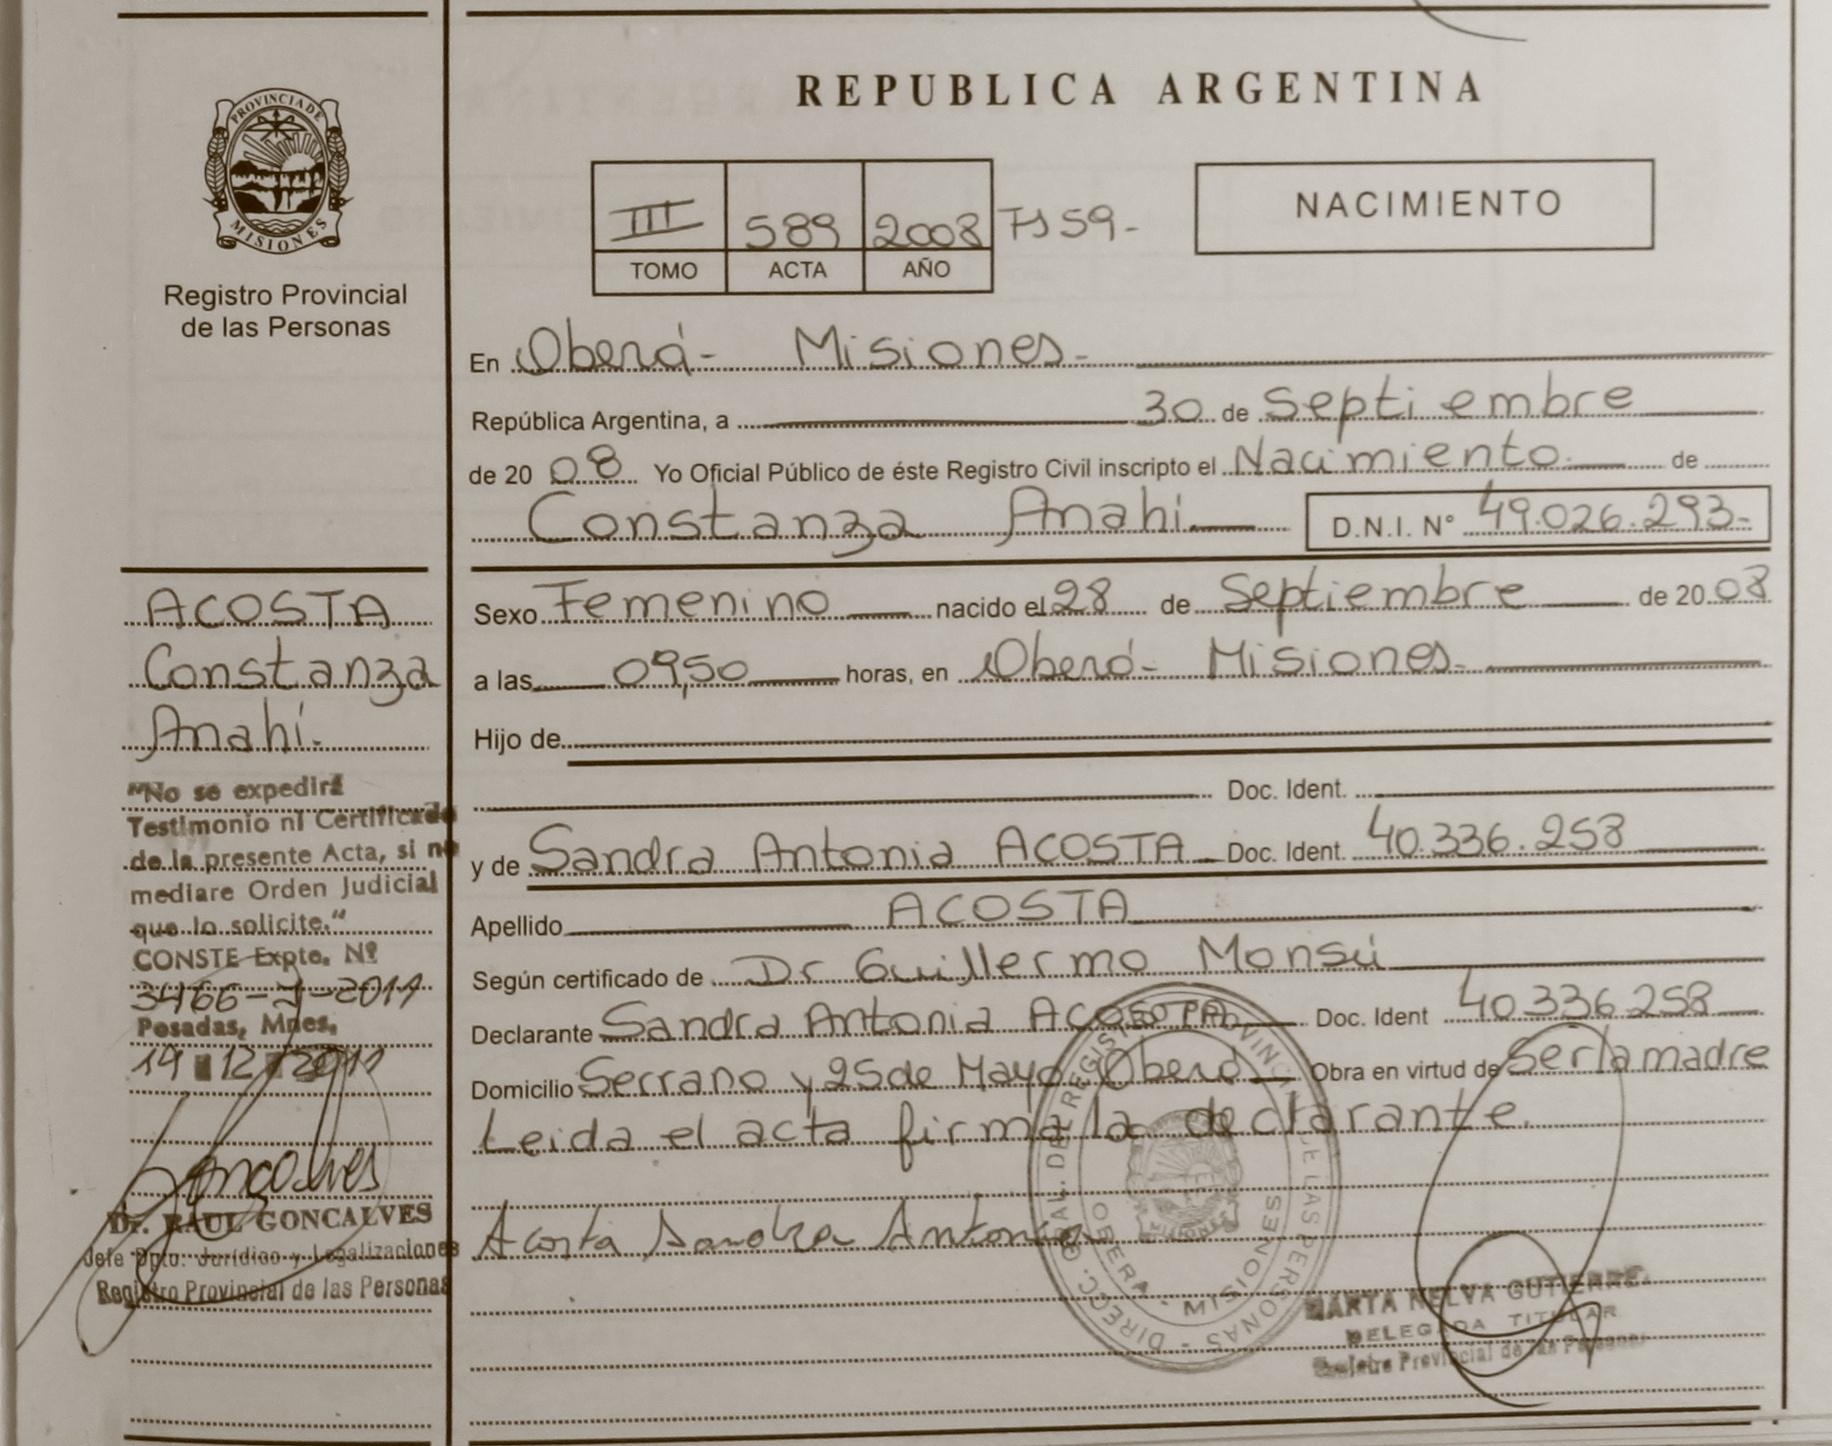 PROVINCIA DE
MISIONES
Registro Provincial
de las Personas
REPUBLICA ARGENTINA
III 589 2008 Fs 59-
TOMO ACTA AÑO
NACIMIENTO
En Oberá- Misiones-
República Argentina, a 30 de Septiembre
de 20 08 Yo Oficial Público de éste Registro Civil inscripto el Nacimiento de
Constanza Anahí D.N.I. N° 49.026.293-
Sexo Femenino nacido el 28 de Septiembre de 20 08
a las 09,50 horas, en Oberá- Misiones-
Hijo de
Doc. Ident.
y de Sandra Antonia ACOSTA Doc. Ident. 40.336.258
Apellido ACOSTA
Según certificado de Dr Guillermo Monsú
Declarante Sandra Antonia ACOSTA Doc. Ident 40.336.258
Domicilio Serrano y 25 de Mayo Oberá Obra en virtud de Ser la madre
Leida el acta firma la declarante.
Acosta Sandra Antonia
DIRECC. GRAL. DE REGISTRO PROVINCIAL DE LAS PERSONAS
OBERA - MISIONES
MARTA NELVA GUTIERREZ
DELEGADA TITULAR
Registro Provincial de las Personas
ACOSTA
Constanza
Anahí-
"No se expedirá
Testimonio ni Certificado
de la presente Acta, si no
mediare Orden Judicial
que lo solicite."
CONSTE Expte. Nº
3466-J-2011
Posadas, Mnes,
19 12 2011
Goncalves
Dr. RAUL GONCALVES
Jefe Dpto: Jurídico y Legalizaciones
Registro Provincial de las Personas